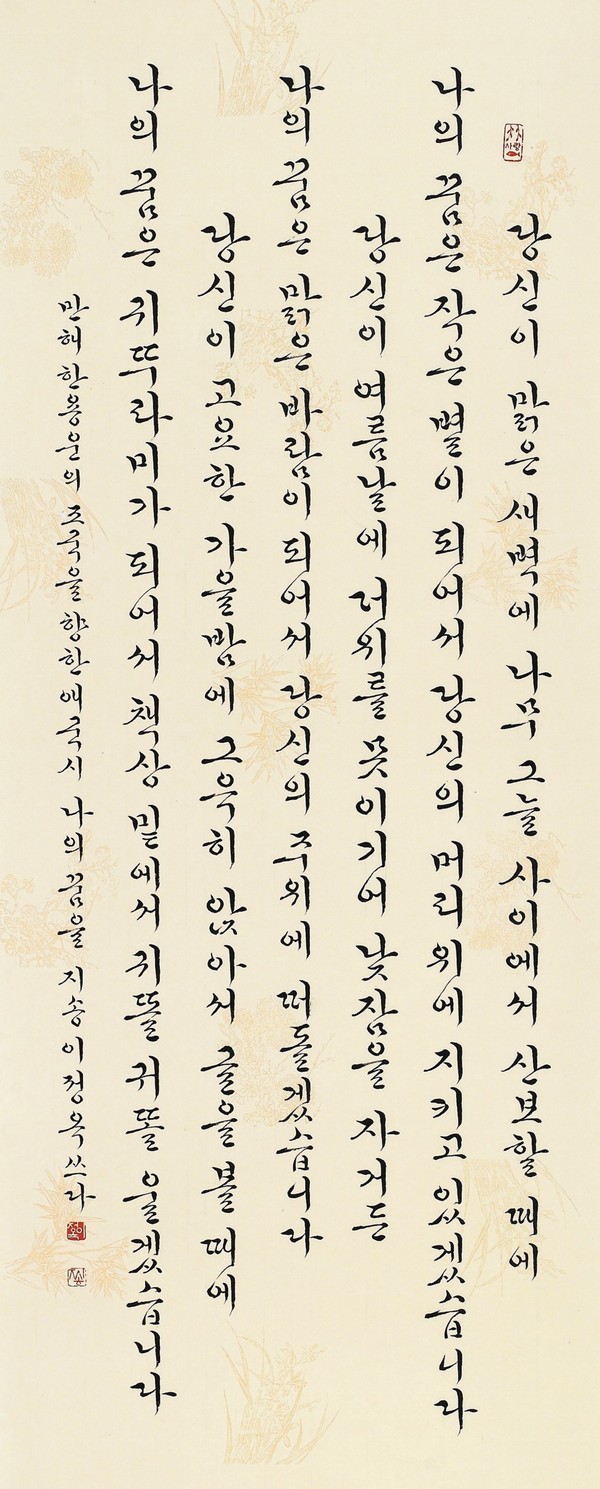 당신이 맑은 새벽에 나무 그늘 사이에서 산보할 때에
나의 꿈은 작은 별이 되어서 당신의 머리위에 지키고 있겠습니다
당신이 여름날에 더위를 못이기어 낮잠을 자거든
나의 꿈은 맑은 바람이 되어서 당신의 주위에 떠돌겠습니다
당신이 고요한 가을밤에 그윽히 앉아서 글을 볼 때에
나의 꿈은 귀뚜라미가 되어서 책상 밑에서 귀뚤 귀뚤 울겠습니다
만해 한용운의 조국을 향한 애국시 나의 꿈을 지송 이정옥 쓰다